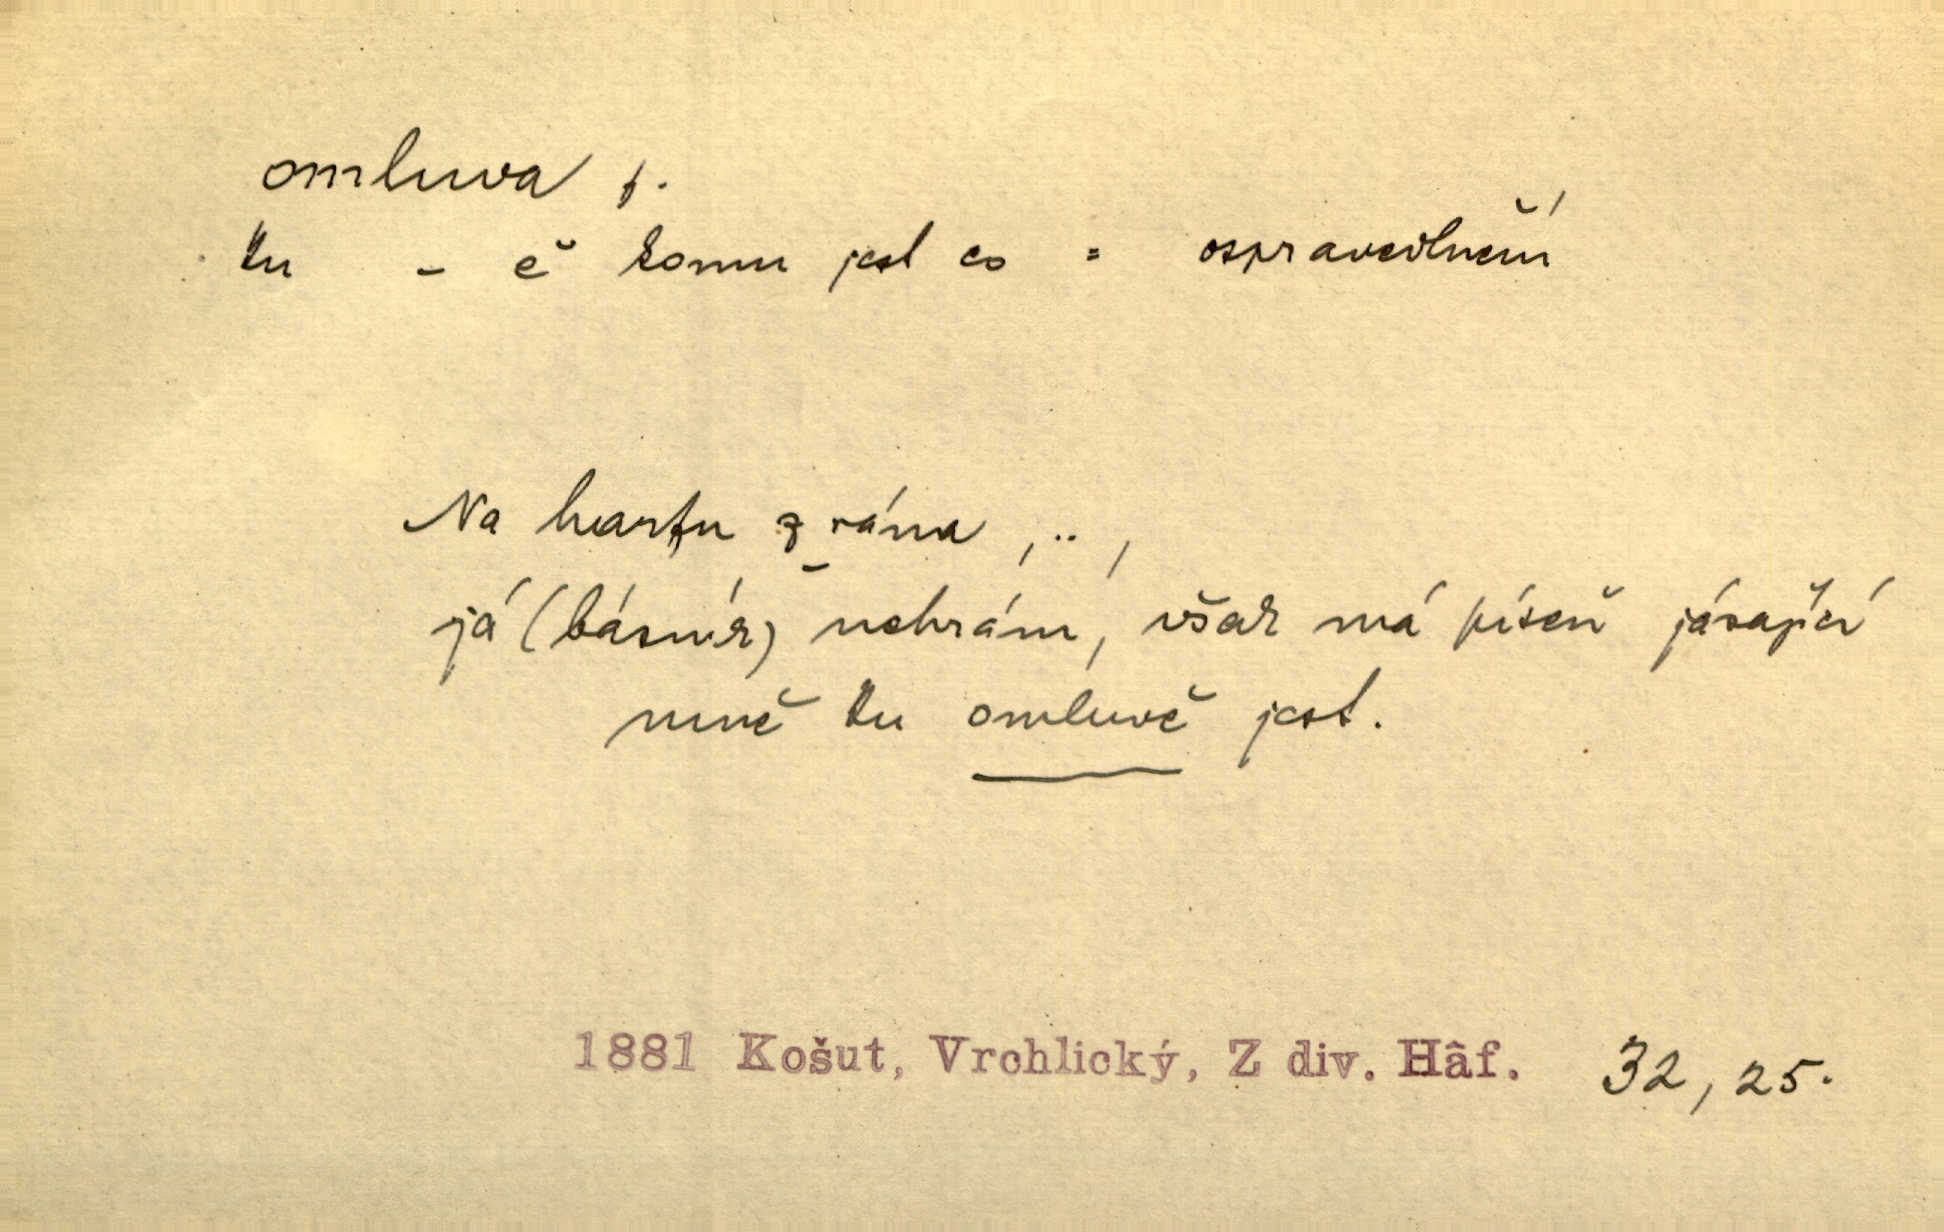 omluva f.
ku - ě komu jest co = ospravedlnění
Na harfu z rána, ..,
já (básník) nehrám, však má píseň jásající
mně ku omluvě jest.
1881 Košut, Vrchlický, Z div. Hâf. 32, 25.